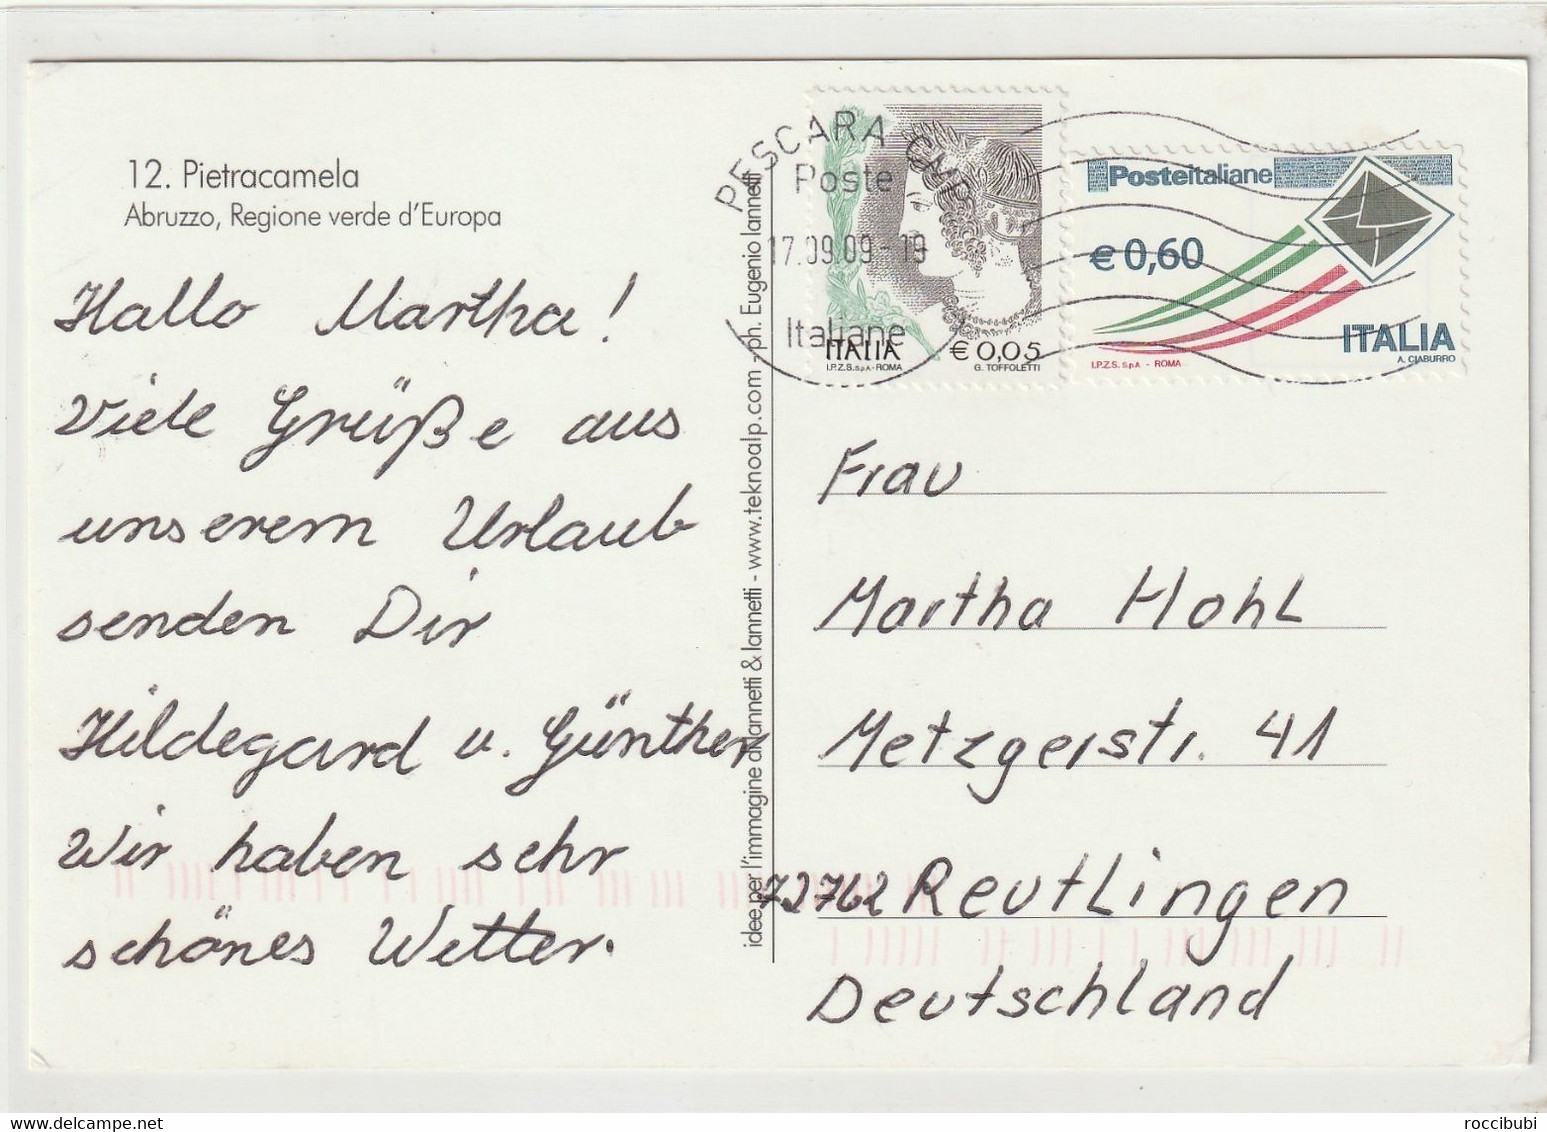 12. Pietracamela
Abruzzo, Regione verde d'Europa
Hallo Martha!
Viele Grüße aus
unserem Urlaub
senden Dir
Hildegard u. Günther
Wir haben sehr
schönes Wetter.
idee per l'immagine di Iannetti & Iannetti - www.teknoalp.com - ph. Eugenio Iannetti
PESCARA CMP
Poste
17.09.09 - 19
Italiane
ITALIA
€ 0,05
I.P.Z.S. S.p.A. - ROMA
G. TOFFOLETTI
Posteitaliane
€ 0,60
ITALIA
I.P.Z.S. S.p.A. - ROMA
A. CIABURRO
Frau
Martha Hohl
Metzgerstr. 41
72762 Reutlingen
Deutschland
roccibubi